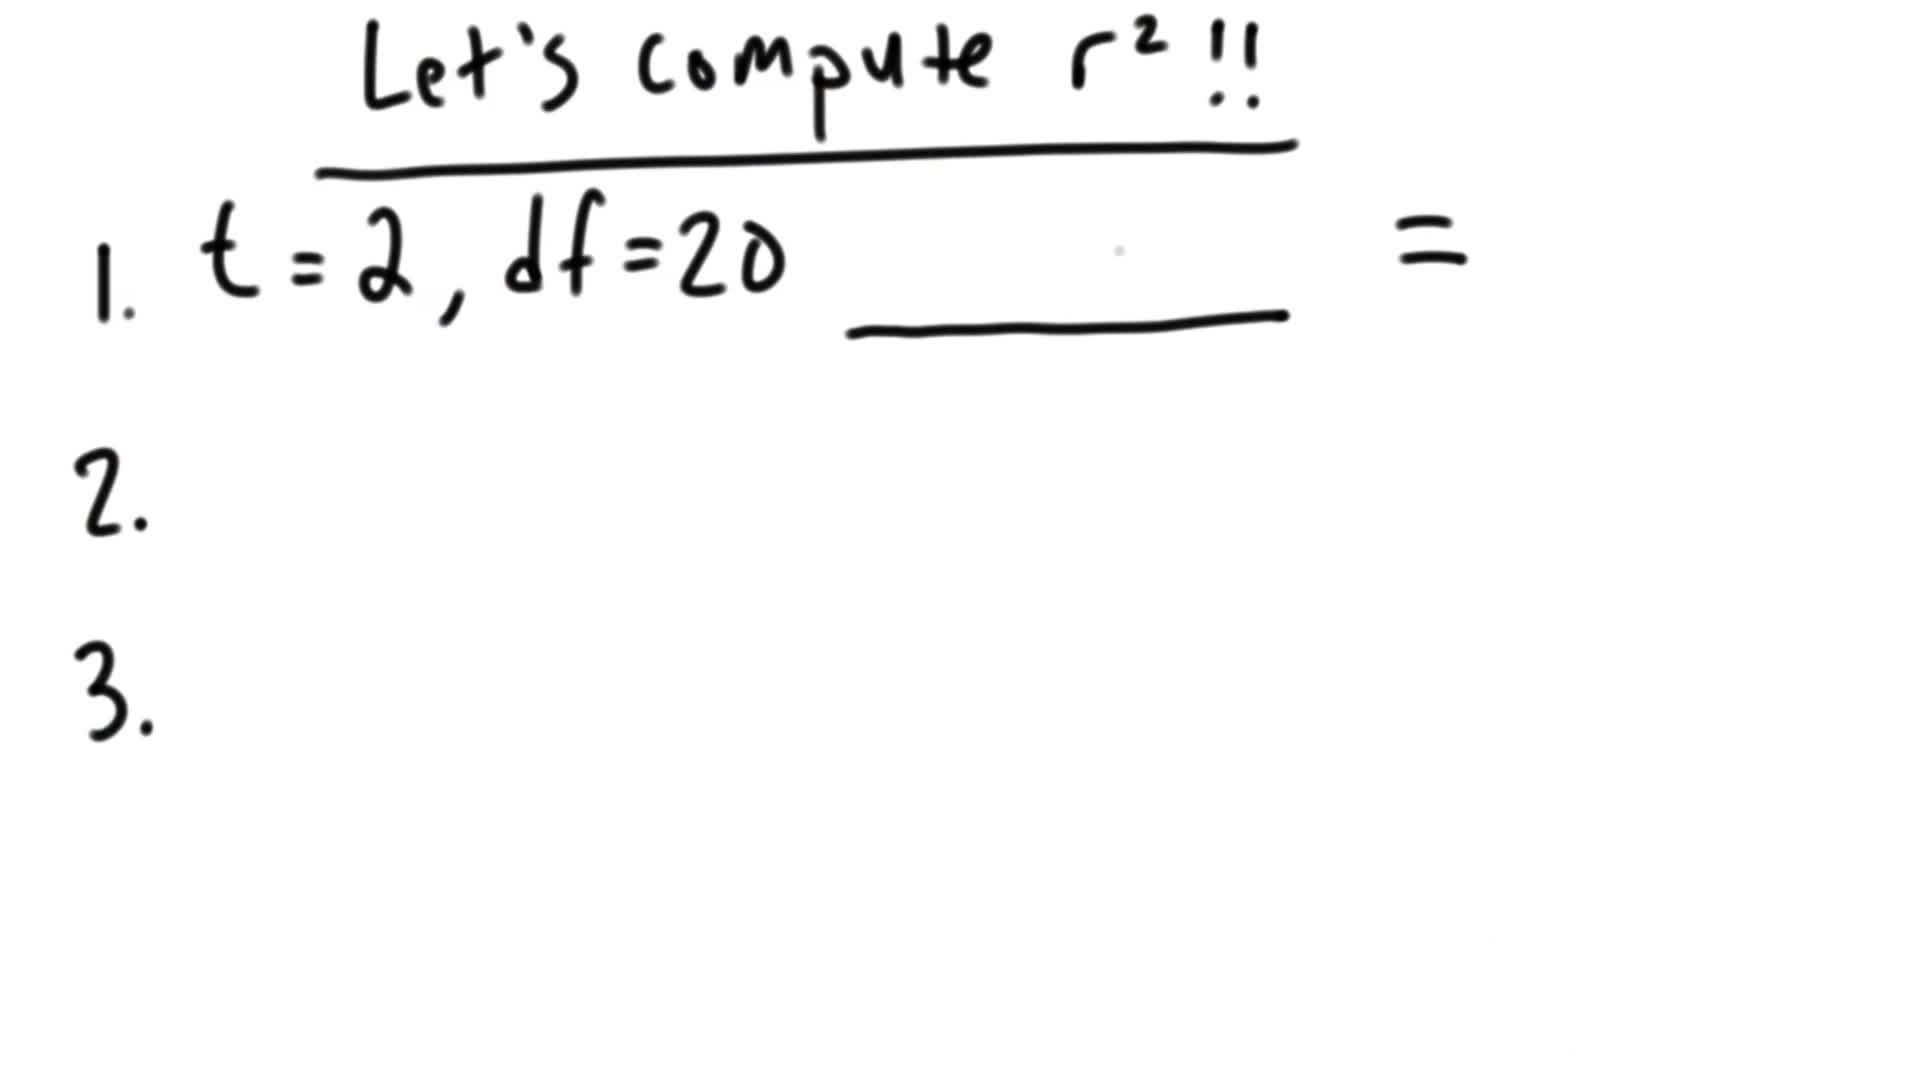 Let's compute r² !!
1. t = 2, df = 20 =
2.
3.